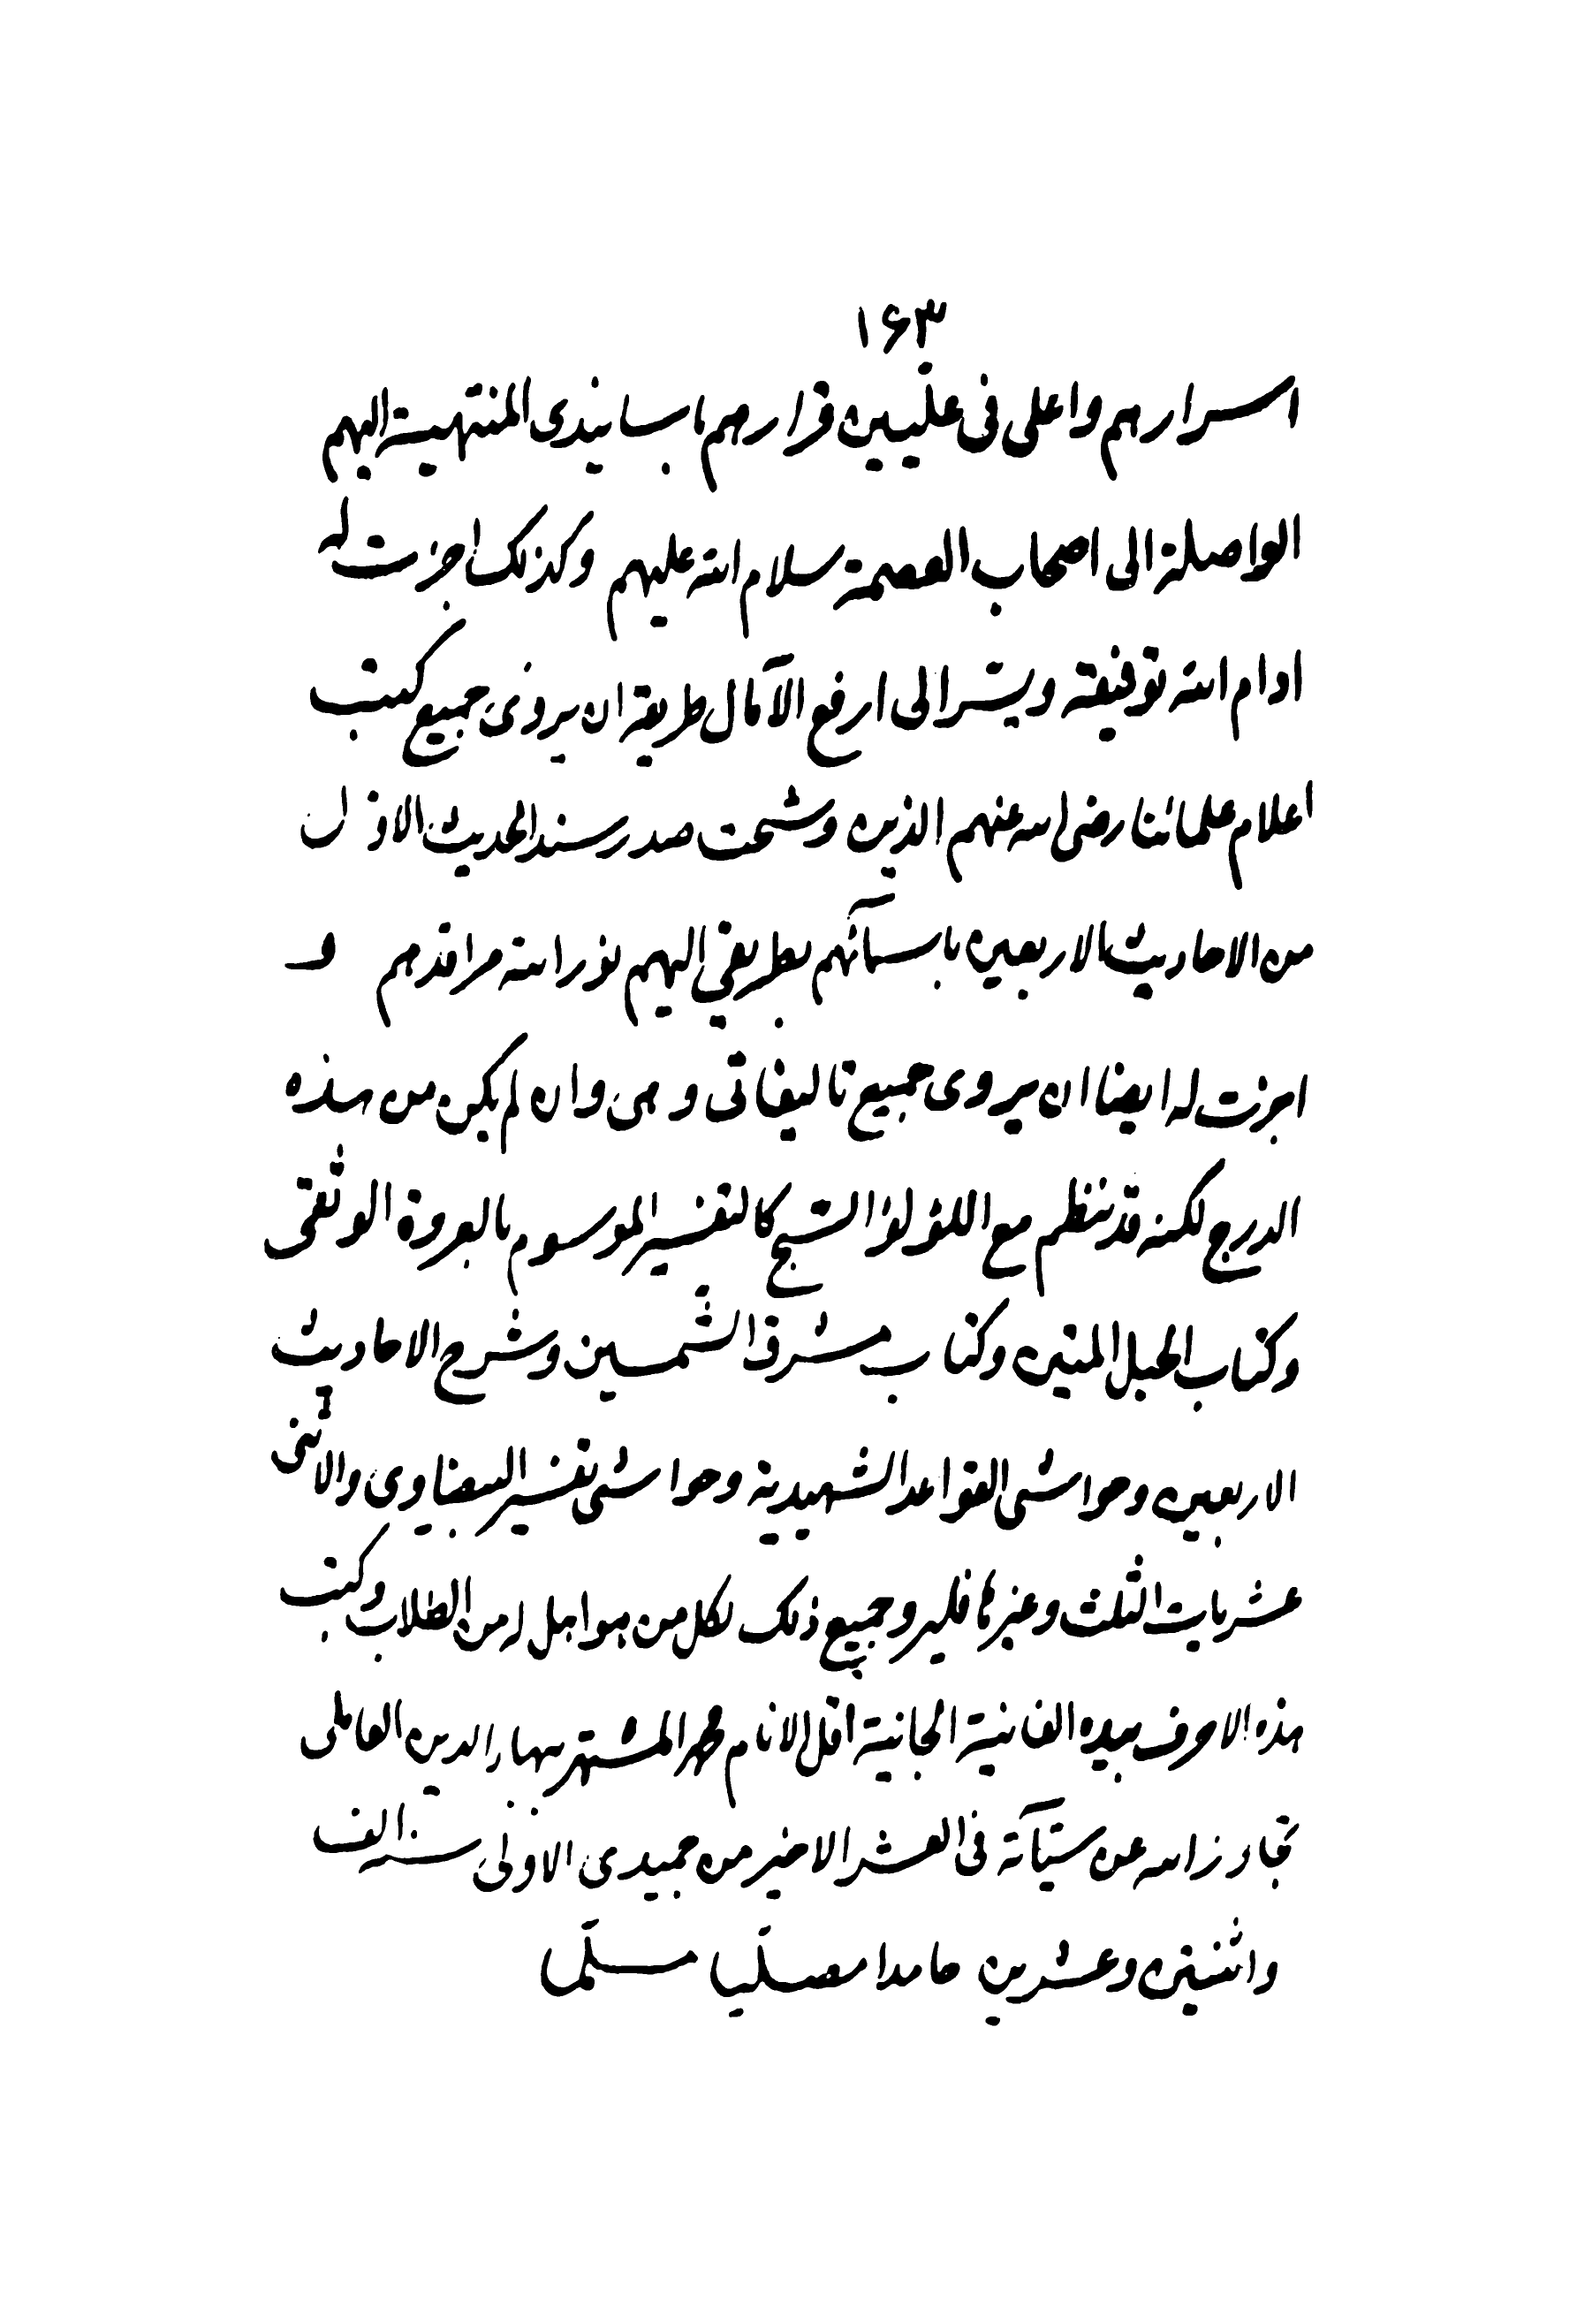 ۱۶۳
اسرارهم واعلى فى عليين قرارهم باسانيدى المنتهية اليهم
الواصلة الى اصحاب العصمة سلام الله عليهم وكذلك اجزت له
ادام الله توفيقه ويسر الى ارفع الآمال طريقه ان يروى جميع كتب
اعلام علمائنا رضى الله عنهم الذين وشحت صدر سند الحديث الاول
من الاحاديث الاربعين باسمآئهم بطريقى اليهم نور الله مراقدهم و
اجزت له ايضا ان يروى جميع تاليفاتى وهى وان لم يكن من هذه
الدرج لكنه قد ينظم مع اللؤلؤ السبج كالتفسير الموسوم بالعروة الوثقى
وكتاب الحبل المتين وكتاب مشرق الشمسين وشرح الاحاديث
الاربعين وحواشى القواعد الشهيدية وحواشى تفسير البيضاوى والاثنى
عشريات الثلث وغيرها فليرو جميع ذلك لكل من هو اهل له من الطلاب وكتب
هذه الاحرف بيده الفانية الجانية اقل الانام محمد المشتهر ببهاء الدين العاملى
تجاوز الله عن سيئآته فى العشر الاخير من جميدى الاولى سنة الف
واثنين وعشرين حامدا مصليا مسلما